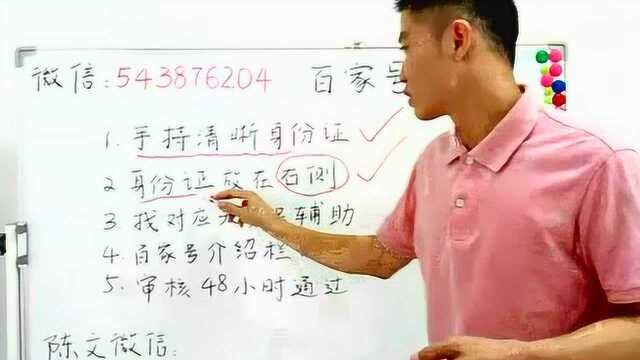 微信:543876204 百家号
1.手持清晰身份证
2身份证放在右侧
3找对应 辅助
4.百家号介绍栏
5.审核48小时通过
陈文微信: